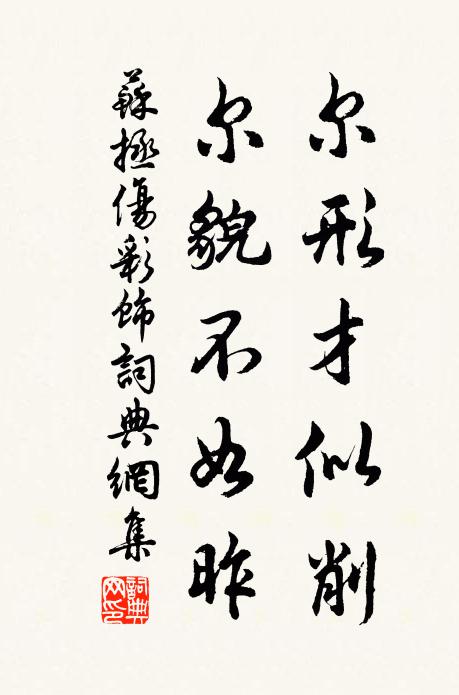 尔形才似削
尔貌不如昨
蘇拯傷彩飾詞典網集
詞典
网印